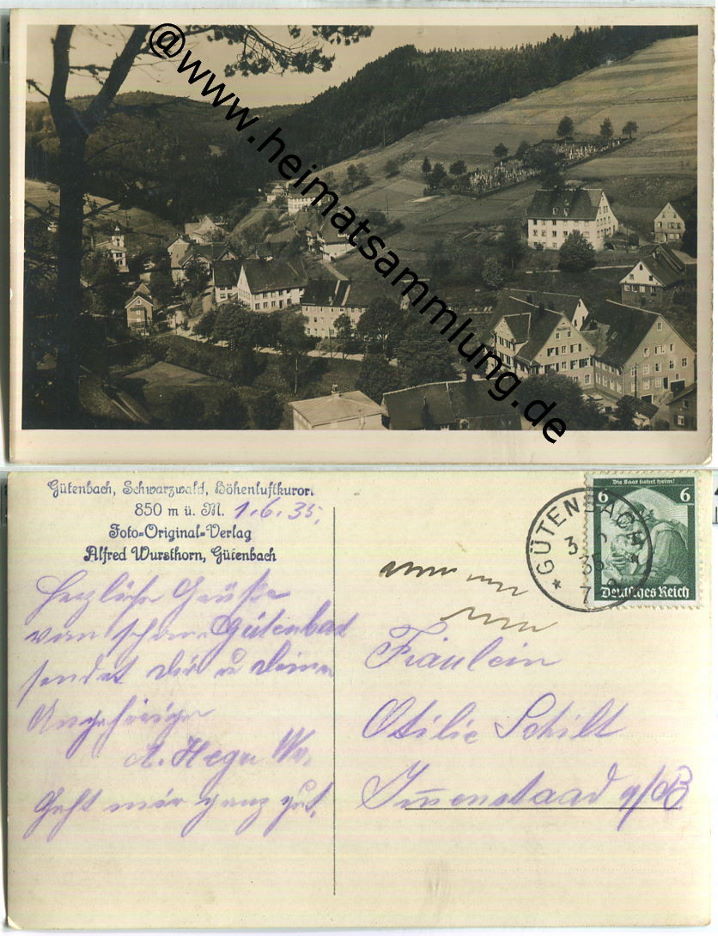 @www.heimatsammlung.de
Gütenbach, Schwarzwald, Höhenluftkurort
850 m ü. M. 1.6.35.
Foto-Original-Verlag
Alfred Wursthorn, Gütenbach
Herzliche Grüße
von schönen Gütenbach
sendet Dir u Deinen
Angehörige
A. Hegn
Geht mir ganz gut.
GÜTENBACH
3
35
7
Die Saar kehrt heim!
6 6
Deutsches Reich
Fräulein
Otilie Schilt
Immenstaad a/B